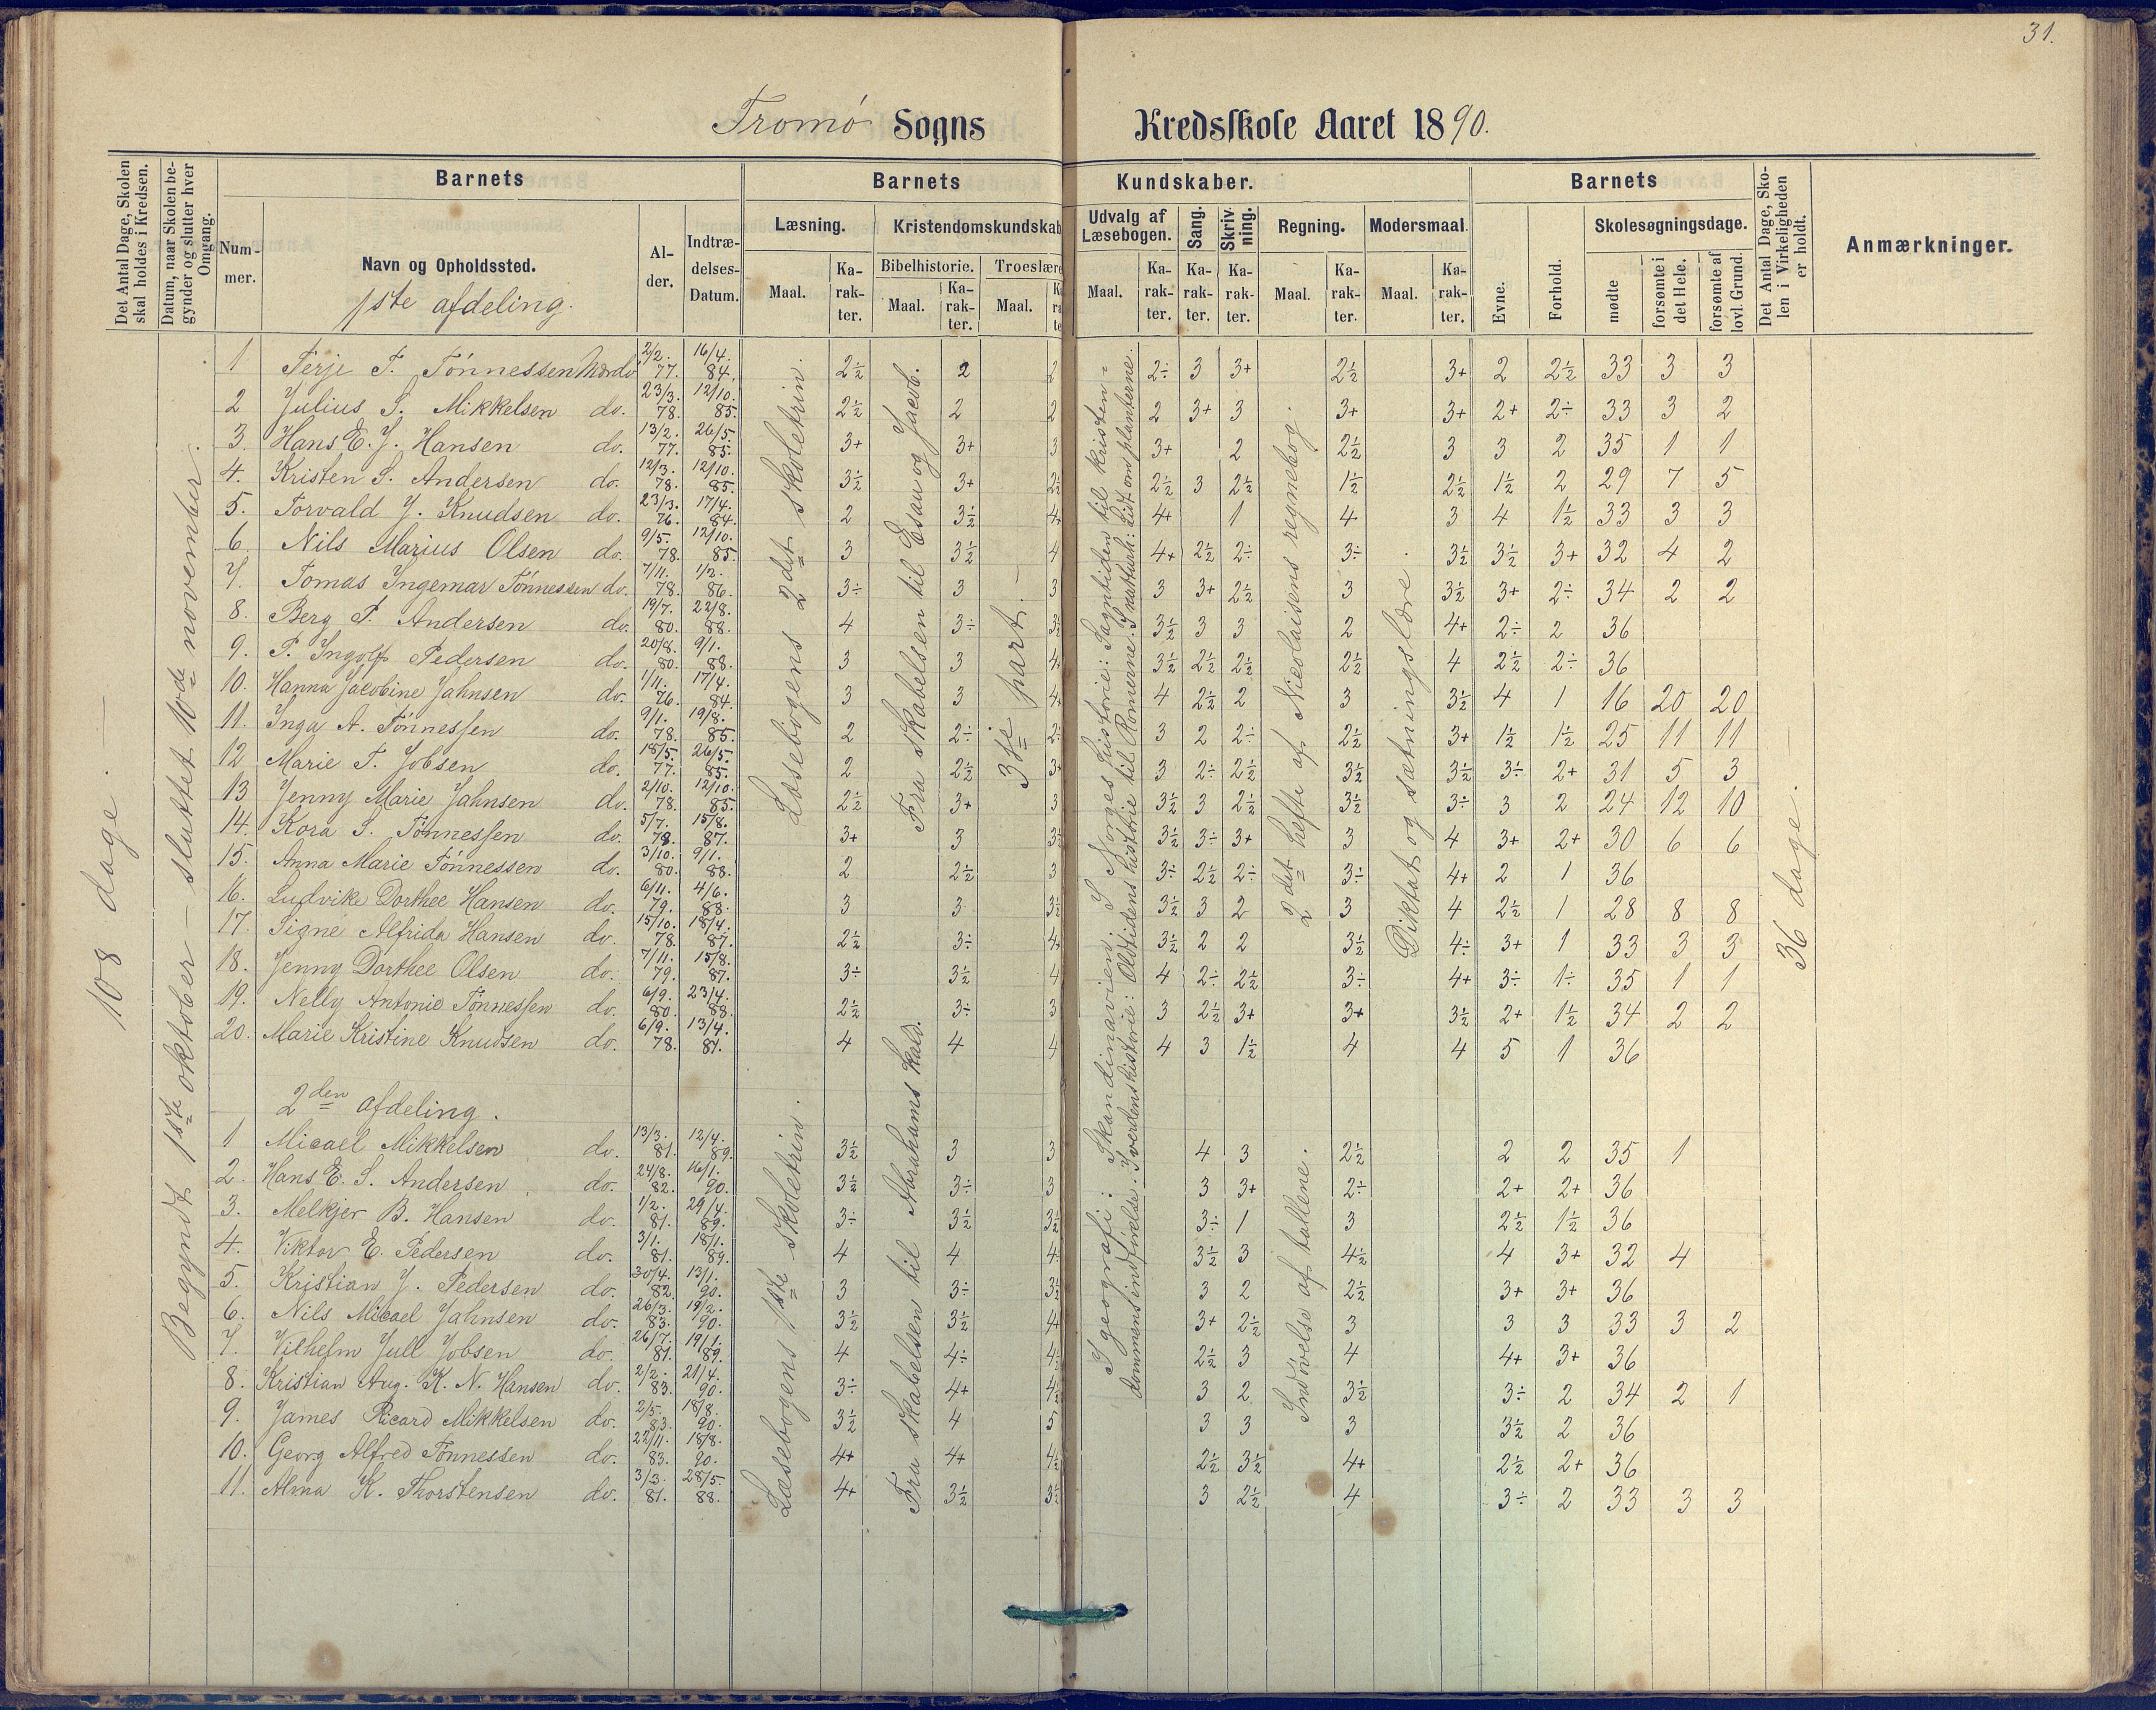 31.
Tromø Sogns Kredsskole Aaret 1890.
Det Antal Dage, Skolen skal holdes i Kredsen.
Datum, naar Skolen begynder og slutter hver Omgang.
Barnets
Nummer.
Navn og Opholdssted.
1ste afdeling.
Alder.
Indtrædelses-Datum.
Barnets Kundskaber.
Læsning.
Maal. Karakter.
Kristendomskundskab
Bibelhistorie. Troeslære
Maal. Karakter. Maal.
Udvalg af Læsebogen.
Maal. Karakter.
Sang. Karakter.
Skrivning. Karakter.
Regning.
Maal. Karakter.
Modersmaal.
Maal. Karakter.
Barnets
Evne. Forhold.
Skolesøgningsdage.
mødte forsømte i det Hele. forsømte af lovl. Grund.
Det Antal Dage, Skolen i Virkeligheden er holdt.
Anmærkninger.
108 dage.
Begyndt 1ste oktober – sluttet 10de november.
Læsebogens 2det skoletrin.
Fra skabelsen til Esau og Jacob.
3dje part.
I geografi: Skandinavien. I Norges historie: Sagntiden til kristendommens indførelse. I verdenshistorie: Oldtidens histtrie til Romerne. I naturh: Lidt om planterne.
2det hefte af Nicolaisens regnebog.
Diktat og sætningslære.
36 dage.
1 Terje T. Tønnessen Mærdø 2/2. 77. 16/4. 84. 2½ 2 2 2÷ 3 3+ 2½ 3+ 2 2½ 33 3 3
2 Julius S. Mikkelsen do. 23/3. 78. 12/10. 85. 2½ 2 2 2 3+ 3 3+ 3+ 2+ 2÷ 33 3 2
3. Hans E. J. Hansen do. 13/2. 77. 26/5. 85. 3+ 3+ 3 3+ 2 2½ 3 3 2 35 1 1
4. Kristen S. Andersen do. 12/3. 78. 12/10. 85. 3½ 3+ 2½ 2½ 3 2½ 1½ 2½ 1½ 2 29 7 5
5. Torvald J. Knudsen do. 23/3. 76. 17/4. 84. 2 3½ 4+ 4+ 1 4 3 4 1½ 33 3 3
6. Nils Marius Olsen do. 9/5. 78. 12/10. 85. 3 3½ 4 4+ 2½ 2÷ 3÷ 3½ 3½ 3+ 32 4 2
7. Tomas Ingemar Tønnessen do. 7/11. 78. 1/2. 86. 3÷ 3 3 3 3+ 2½ 3 3½ 3+ 2÷ 34 2 2
8. Berg P. Andersen do. 19/7. 80. 22/8. 88. 4 3÷ 3½ 3½ 3 3 2 4+ 2÷ 2 36
9. P. Ingolf Pedersen do. 20/8. 80. 9/1. 88. 3 3 4+ 3½ 2½ 2½ 2½ 4 2½ 2÷ 36
10. Hanna Jacobine Jahnsen do. 1/11. 76. 17/4. 84. 3 3 4+ 4 2½ 2 3 3½ 4 1 16 20 20
11. Inga A. Tønnessen do. 9/1. 78. 19/8. 85. 2 2÷ 2÷ 3 2 2÷ 2½ 3+ 1½ 1½ 25 11 11
12 Marie T. Jobsen do. 18/5. 77. 26/5. 85. 2 2½ 3+ 3 2÷ 2½ 3½ 3½ 3÷ 2+ 31 5 3
13 Jenny Marie Jahnsen do. 2/10. 78. 12/10. 85. 2½ 3+ 3 3½ 3 2½ 3½ 3÷ 3 2 24 12 10
14. Kora S. Tønnessen do. 5/7. 79. 15/8. 87. 3+ 3 3½ 3½ 3÷ 3+ 3 4 3+ 2+ 30 6 6
15. Anna Marie Tønnessen do. 3/10. 80. 9/1. 88. 2 2½ 3 3÷ 2½ 2÷ 3÷ 4+ 2 1 36
16. Ludvike Dorthee Hansen do. 6/11. 79. 4/6. 88. 3 3 3½ 3½ 3 2 3 4 2½ 1 28 8 8
17. Signe Alfrida Hansen do. 15/10. 78. 18/4. 87. 2½ 3÷ 4+ 3½ 2 2 3½ 4÷ 3+ 1 33 3 3
18. Jenny Dorthee Olsen do. 7/11. 79. 15/8. 87. 3÷ 3½ 4 4 2÷ 2½ 3÷ 4+ 3÷ 1÷ 35 1 1
19. Nelly Antonie Tønnessen do. 6/9. 80. 23/4. 88. 2½ 3÷ 3 3 2½ 3+ 3+ 3½ 2+ 1½ 34 2 2
20. Marie Kristine Knudsen do. 6/9. 78. 13/4. 87. 4 4 4 4 3 1½ 4 4 5 1 36
2den afdeling.
Læsebogens 1ste skoletrin.
Fra skabelsen til Abrahams kald.
Indøvelse af tallene.
1 Micael Mikkelsen do. 13/3. 81. 12/4. 89. 3½ 3 3 4 3 2½ 2 2 35 1
2. Hans E. S. Andersen do. 24/8. 82. 16/1. 90. 3½ 3÷ 3 3 3+ 2÷ 2+ 2+ 36
3. Melkjer B. Hansen do. 1/2. 81. 29/4. 89. 3÷ 3½ 3½ 3÷ 1 3 2½ 1½ 36
4. Viktor E. Pedersen do. 3/1. 81. 18/1. 89. 4 4 4÷ 3½ 3 4½ 4 3+ 32 4
5. Kristian J. Pedersen do. 30/4. 82. 13/1. 90. 3 3÷ 3½ 3 2 2½ 3+ 3+ 36
6. Nils Micael Jahnsen do. 26/3. 83. 19/2. 90. 3½ 3½ 4+ 3+ 2½ 3 3 3 33 3 2
7. Vilhelm Jull Jobsen do. 26/7. 81. 19/1. 89. 4 4÷ 4½ 2½ 3 4 4+ 3+ 36
8. Kristian Aug. K. N. Hansen do. 2/2. 83. 21/4. 90. 3÷ 4+ 4½ 3 2 3½ 3÷ 2 34 2 1
9. James Ricard Mikkelsen do. 2/5. 83. 18/8. 90. 3½ 4 5 3 3 3 3½ 2 36
10. Georg Alfred Tønnessen do. 22/11. 83. 18/8. 90. 4+ 4+ 4½ 2½ 3½ 4+ 2½ 2+ 36
11. Alma K. Thorstensen do. 3/3. 81. 28/5. 88. 4+ 3½ 3½ 3 2½ 4 3÷ 2 33 3 3